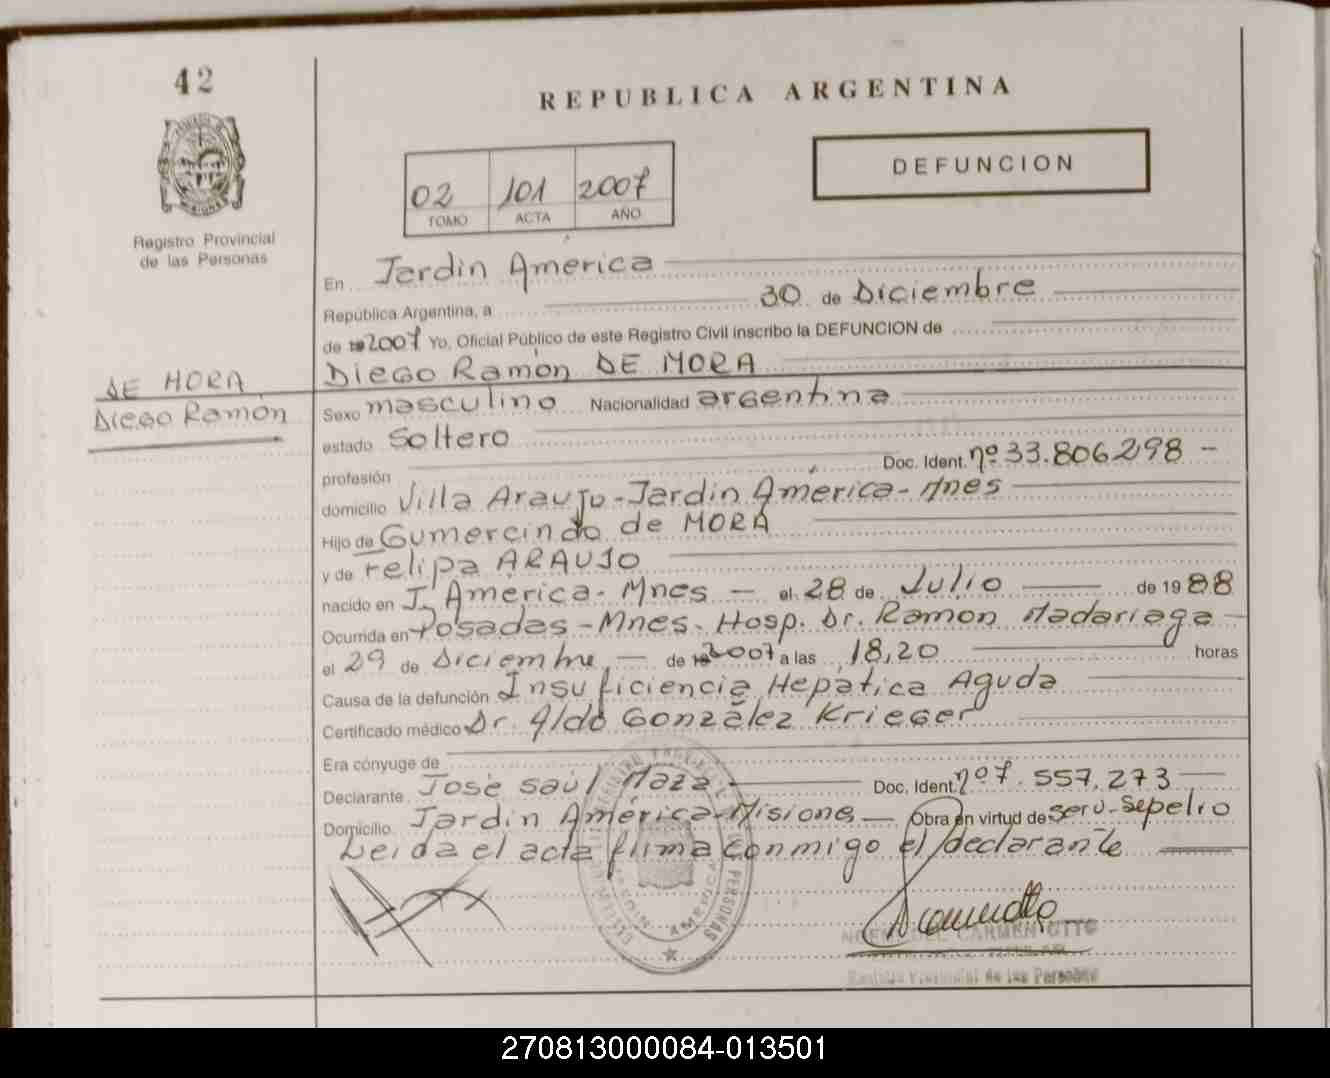 42
REPUBLICA ARGENTINA
DEFUNCION
02 101 2007
TOMO ACTA AÑO
Registro Provincial
de las Personas
En Jardin America
República Argentina, a 30 de Diciembre
de 19 2007 Yo, Oficial Público de este Registro Civil inscribo la DEFUNCION de
DE MORA
Diego Ramón
Diego Ramón DE MORA
Sexo masculino Nacionalidad argentina
estado Soltero
profesión Doc. Ident. nº 33.806298 -
domicilio Villa Araujo - Jardin América - Mnes
Hijo de Gumercindo de MORA
y de Felipa ARAUJO
nacido en J. America - Mnes - el 28 de Julio de 1988
Ocurrida en Posadas - Mnes. Hosp. Dr. Ramon Madariaga
el 29 de Diciembre - de 19 2007 a las 18,20 horas
Causa de la defunción Insuficiencia Hepatica Aguda
Certificado médico Dr. Aldo González Krieger
Era cónyuge de
Declarante José Saúl Maza Doc. Ident. nº 7.557.273
Domicilio Jardin América - Misiones Obra en virtud de Serv. Sepelio
Leida el acta firma conmigo el declarante
DEL CARMEN OTTO
Registro Provincial de las Personas
270813000084-013501